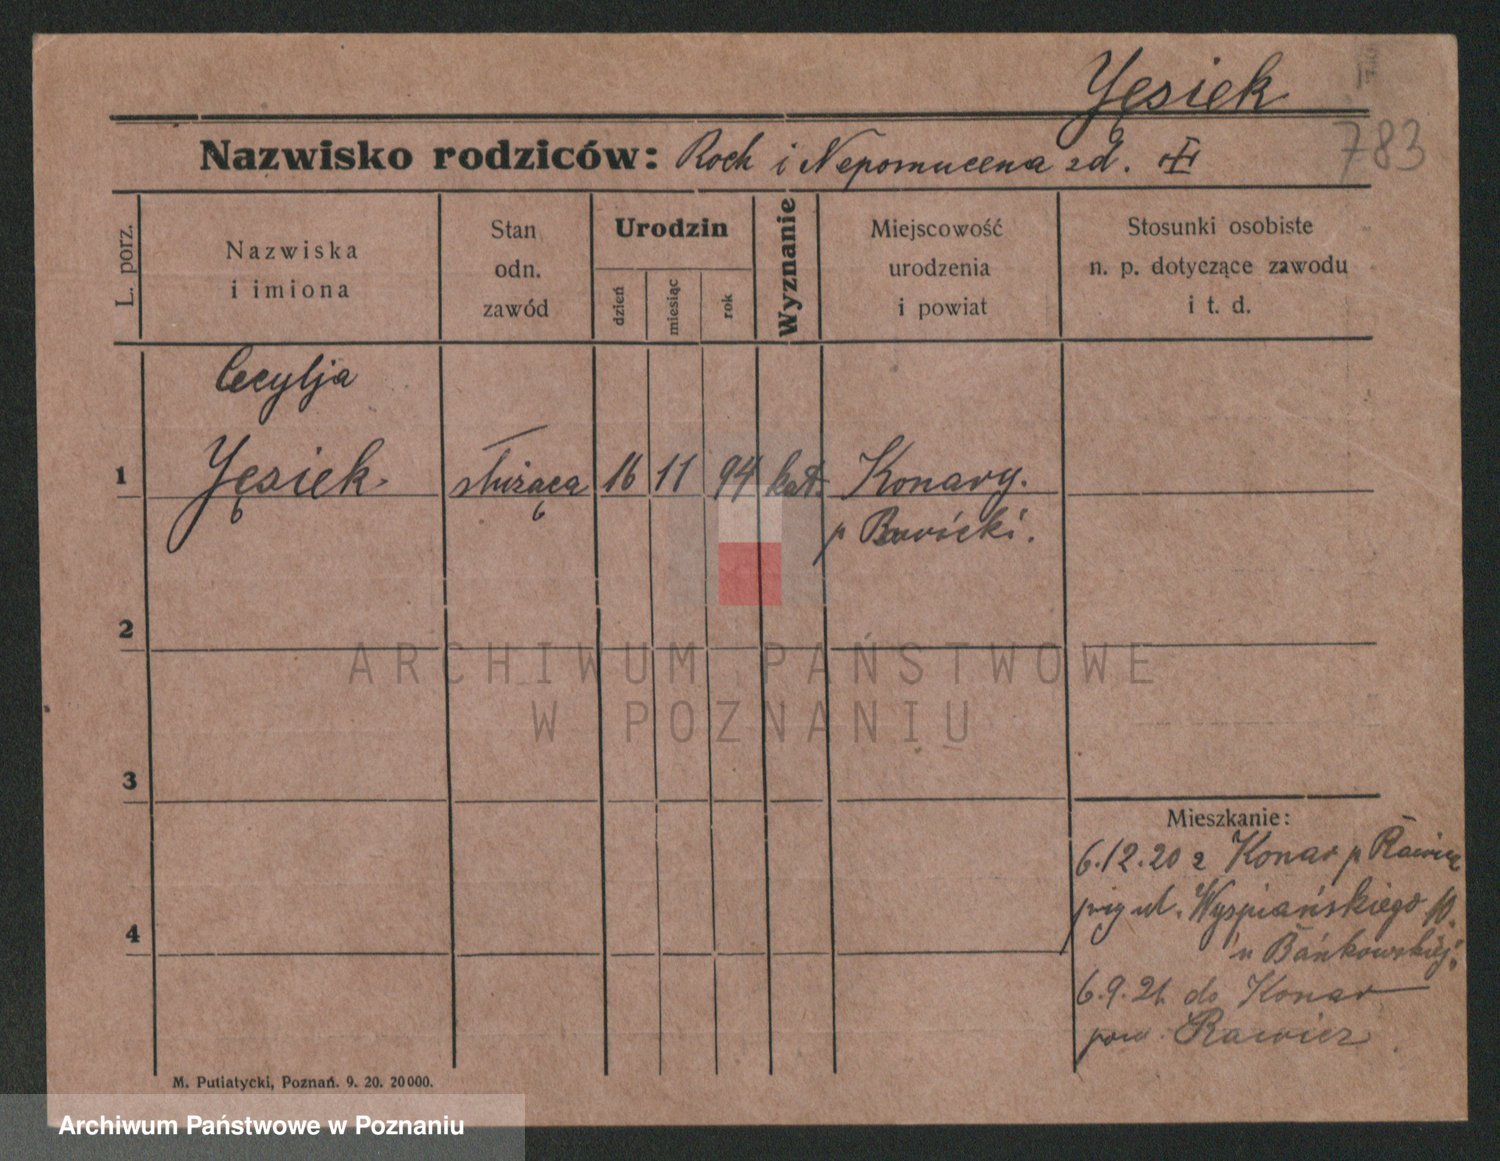 Yęsiek
783
Nazwisko rodziców: Roch i Nepomucena zd.
L. porz.
Nazwiska i imiona
Stan odn. zawód
Urodzin
dzień
miesiąc
rok
Wyznanie
Miejscowość urodzenia i powiat
Stosunki osobiste n. p. dotyczące zawodu i t. d.
Cecylja
1 Yęsiek służąca 16 11 94 kat. Konary.
p
2
ARCHIWUM PAŃSTWOWE
W POZNANIU
3
Mieszkanie:
6.12.20 z Konar p Rawicz
ul. Wyspiańskiego 10.
4
u Bańkowskiej.
6.9.21. do Konar
pow. Rawicz
M. Putiatycki, Poznań. 9. 20. 20000.
Archiwum Państwowe w Poznaniu